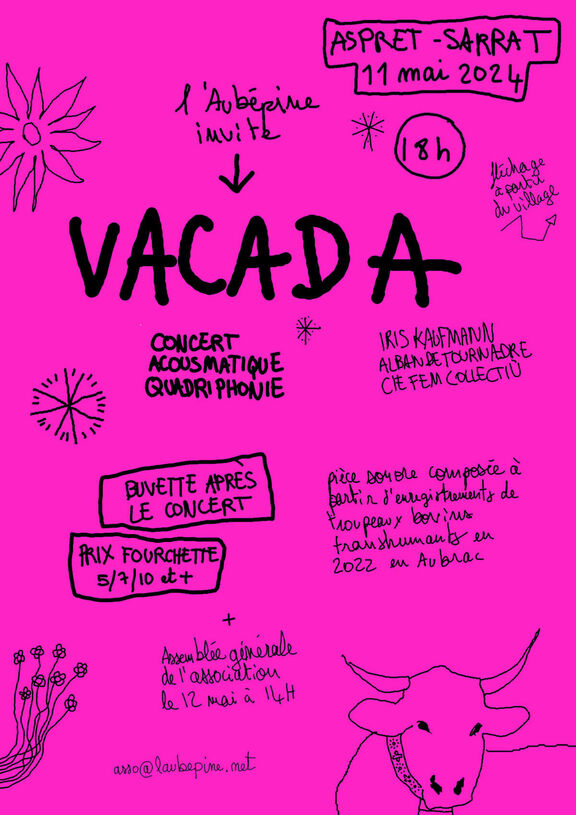 ASPRET-SARRAT
11 mai 2024
l'Aubépine
invite
18h
fléchage
à partir
du village
VACADA
CONCERT
ACOUSMATIQUE
QUADRIPHONIE
IRIS KAUFMANN
ALBAN DE TOURNADRE
CIE FEM COLLECTIU
BUVETTE APRÈS
LE CONCERT
PRIX FOURCHETTE
5/7/10 et +
pièce sonore composée à
partir d'enregistrements de
troupeaux bovins
transhumants en
2022 en Aubrac
+
Assemblée générale
de l'association
le 12 mai à 14H
asso@laubepine.net